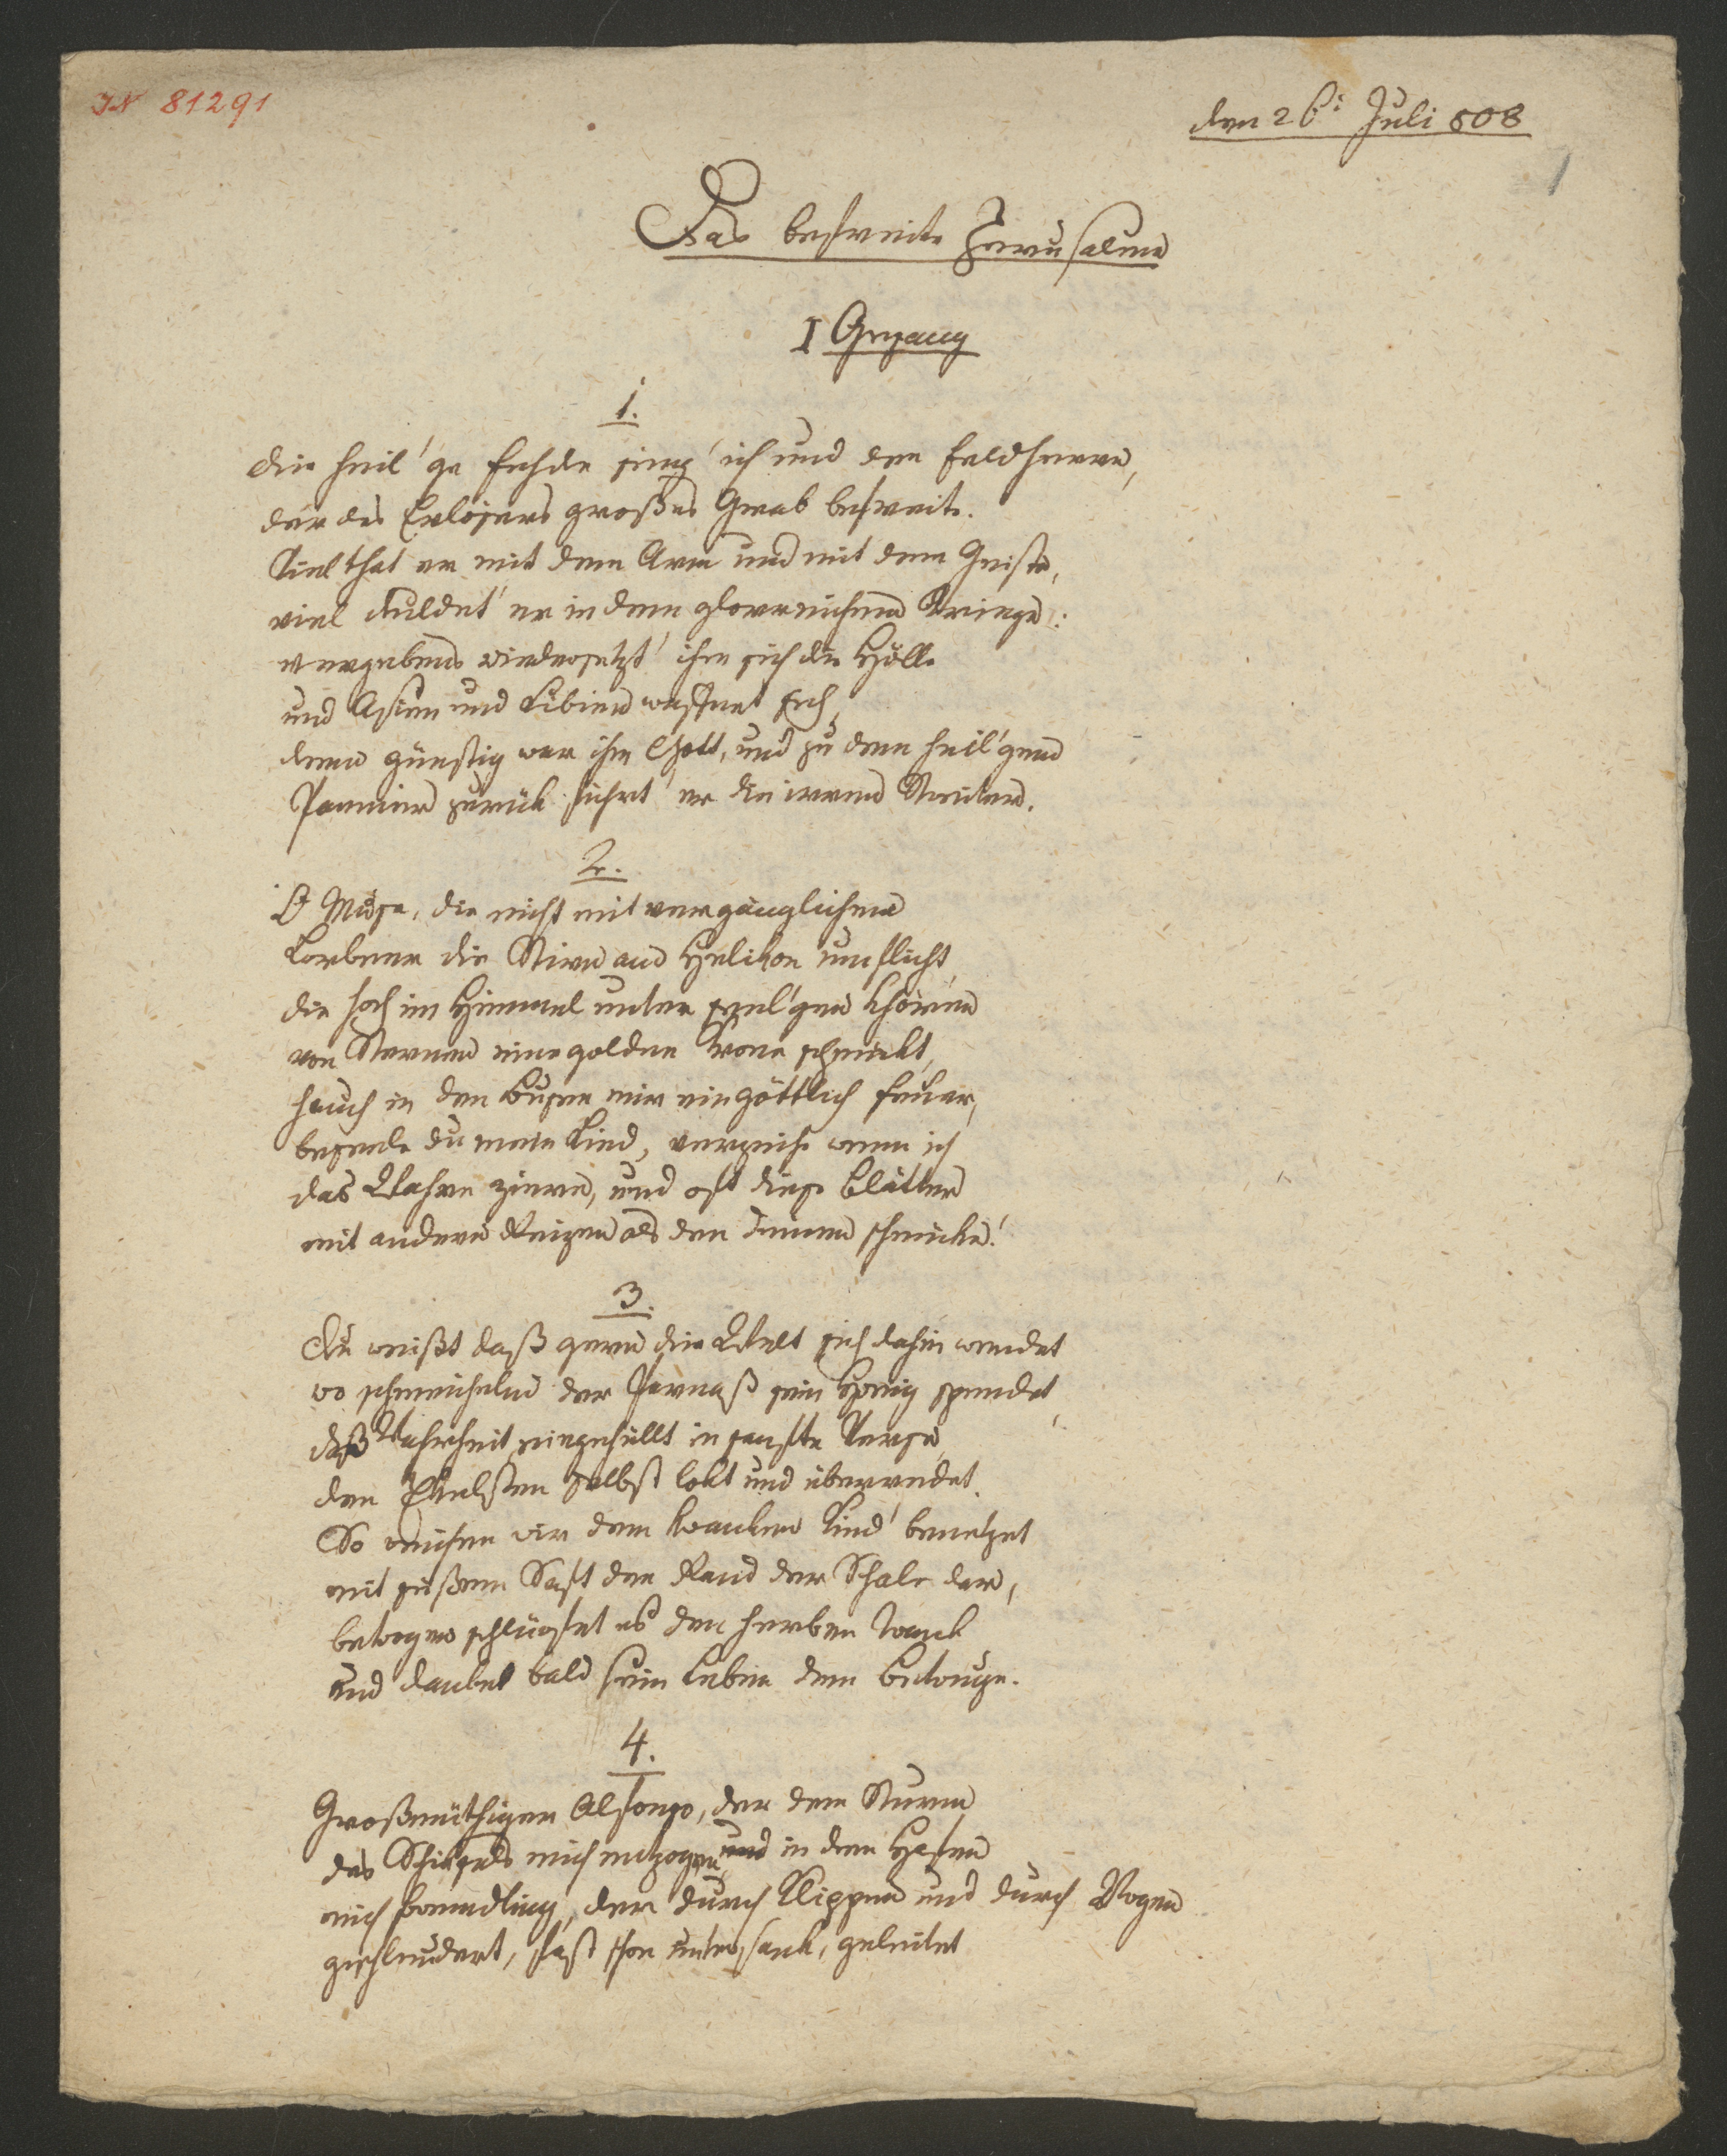 IN 81291
den 26: Juli 808
1
Das befreite Jerusalem
I Gesang
1.
die heil'ge Fehde sing' ich und den Feldherrn,
der des Erlösers großes Grab befreite.
Viel that er mit dem Arm und mit dem Geiste,
viel duldet' er in dem glorreichen Kriege:
vergebens widersetzt' ihm sich die Hölle
und Asien und Libien waffnet sich,
denn günstig war ihm Gott, und zu den heil'gen
Pannier zurük führt' er die irren Streiter.
2.
O Muse, die nicht mit vergänglichem
Lorbeer die Stirn am Helikon umflicht,
die hoch im Himmel unter seel'gen Chören
von Sternen eine goldne Krone schmückt,
hauch in den Busen mir ein göttlich Feuer,
beseele du mein Lied, verzeihe wenn ich
das Wahre zieren, und oft diese Blätter
mit andern Reizen als den deinen schmücke!
3.
Du weißt daß gern die Welt sich dahin wendet
wo schmeichelnd der Parnaß sein Honig spendet,
daß Wahrheit eingehüllt in sanfte Verse,
den selbst lokt und überredet.
So reichen wir dem kranken Kind' benetzet
mit süßem Saft den Rand der Schale dar,
betrogen schlürfet es den herben Trank
und danket bald sein Leben dem Betruge.
4.
Großmüthiger Alfonso, der dem Sturm
des Schiksals mich entzogen, und in den Hafen
mich Fremdling, der durch Klippen und durch Wogen
geschleudert, fast schon untersank, geleitet